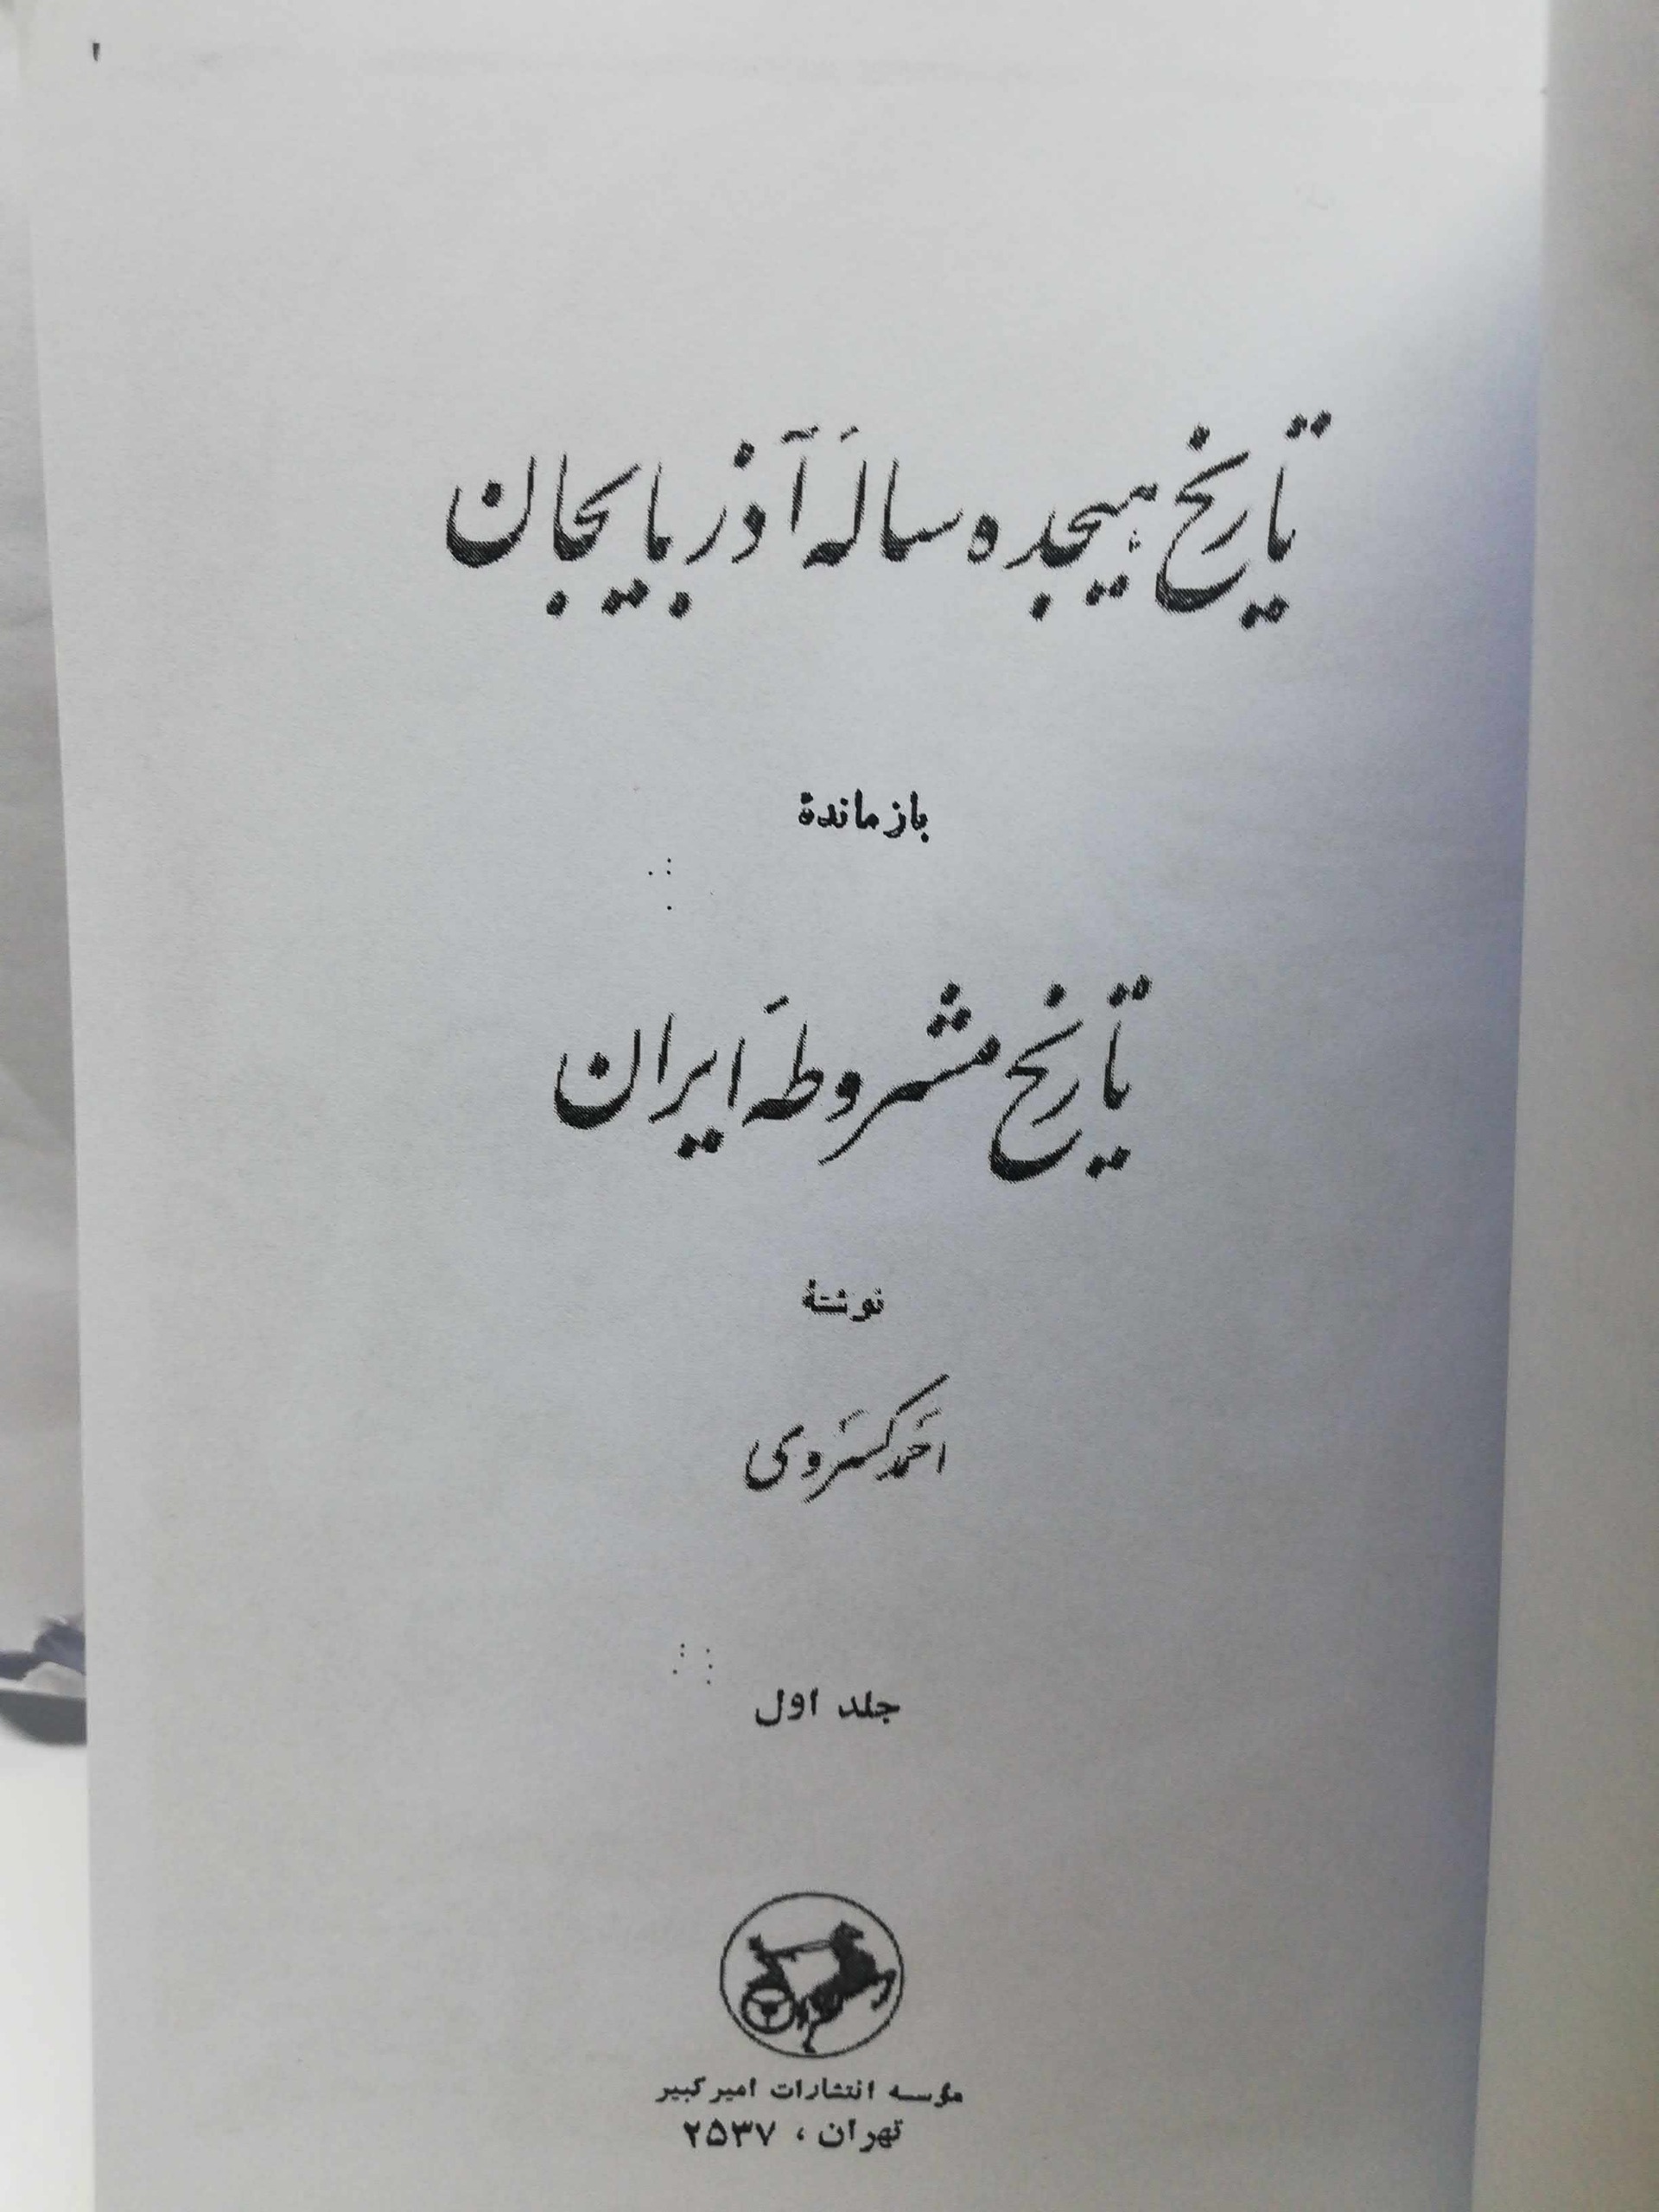 تاریخ هیجده سالهٔ آذربایجان
بازماندهٔ
تاریخ مشروطهٔ ایران
نوشتهٔ
احمد کسروی
جلد اول
مؤسسه انتشارات امیرکبیر
تهران، ۲۵۳۷